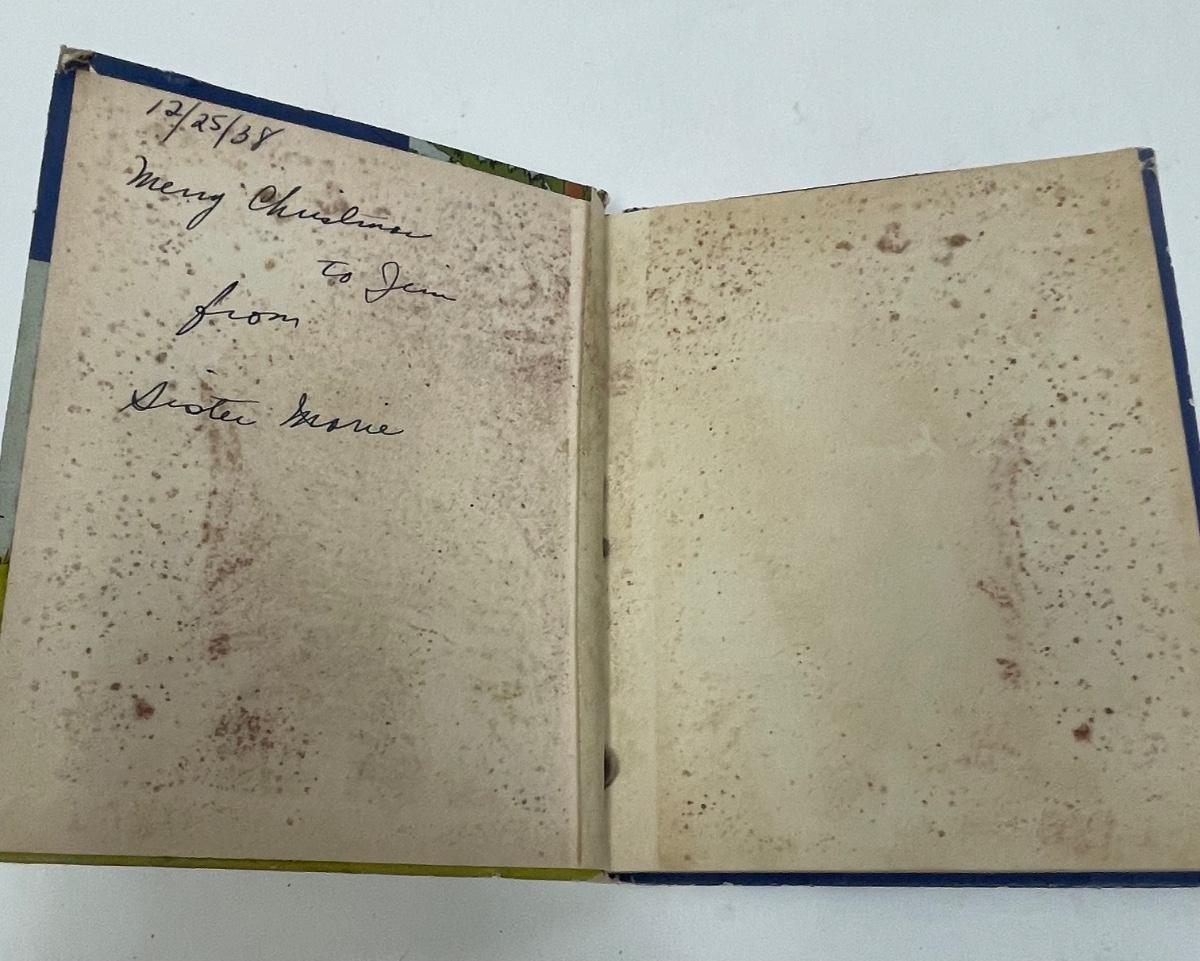 12/25/38
Merry Christmas
to Jim
from
Sister Marie